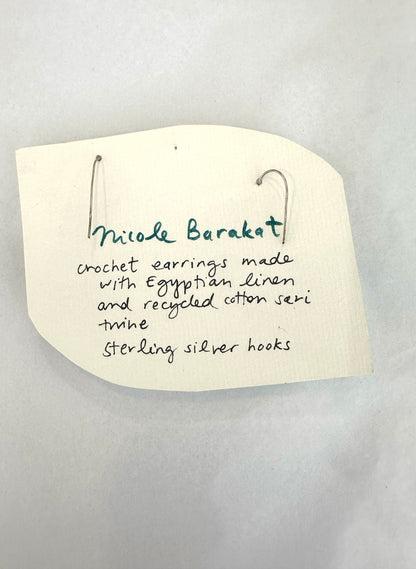 Nicole Barakat
crochet earrings made
with Egyptian linen
and recycled cotton sari
twine
sterling silver hooks